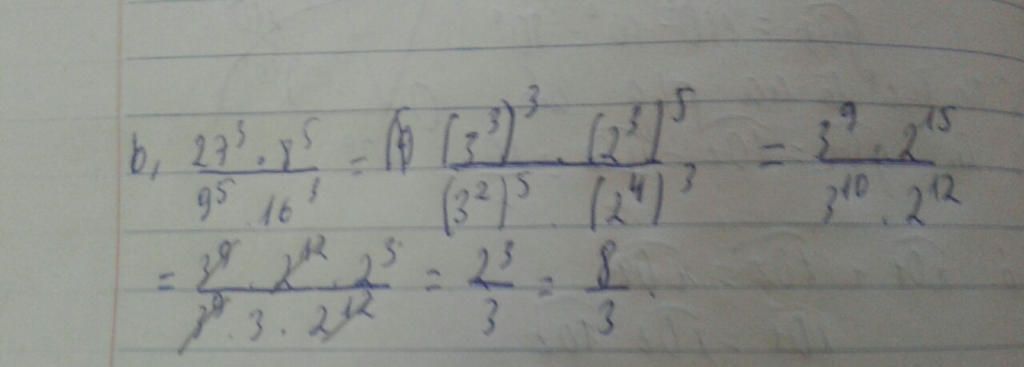 b, \frac{27^3 \cdot 8^5}{9^5 \cdot 16^3} = \frac{(3^3)^3 \cdot (2^3)^5}{(3^2)^5 \cdot (2^4)^3} = \frac{3^9 \cdot 2^{15}}{3^{10} \cdot 2^{12}}
= \frac{3^9 \cdot 2^{12} \cdot 2^3}{3^9 \cdot 3 \cdot 2^{12}} = \frac{2^3}{3} = \frac{8}{3}.